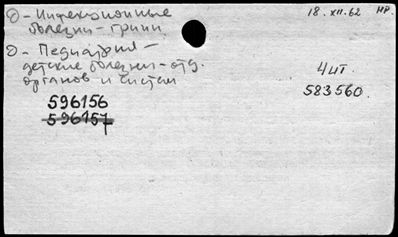 О - Инфекционные
болезни - грипп
18.XII.62 нр.
О - Педиатрия -
детские болезни - отд.
органов и систем
4 шт.
583560.
596156
596157